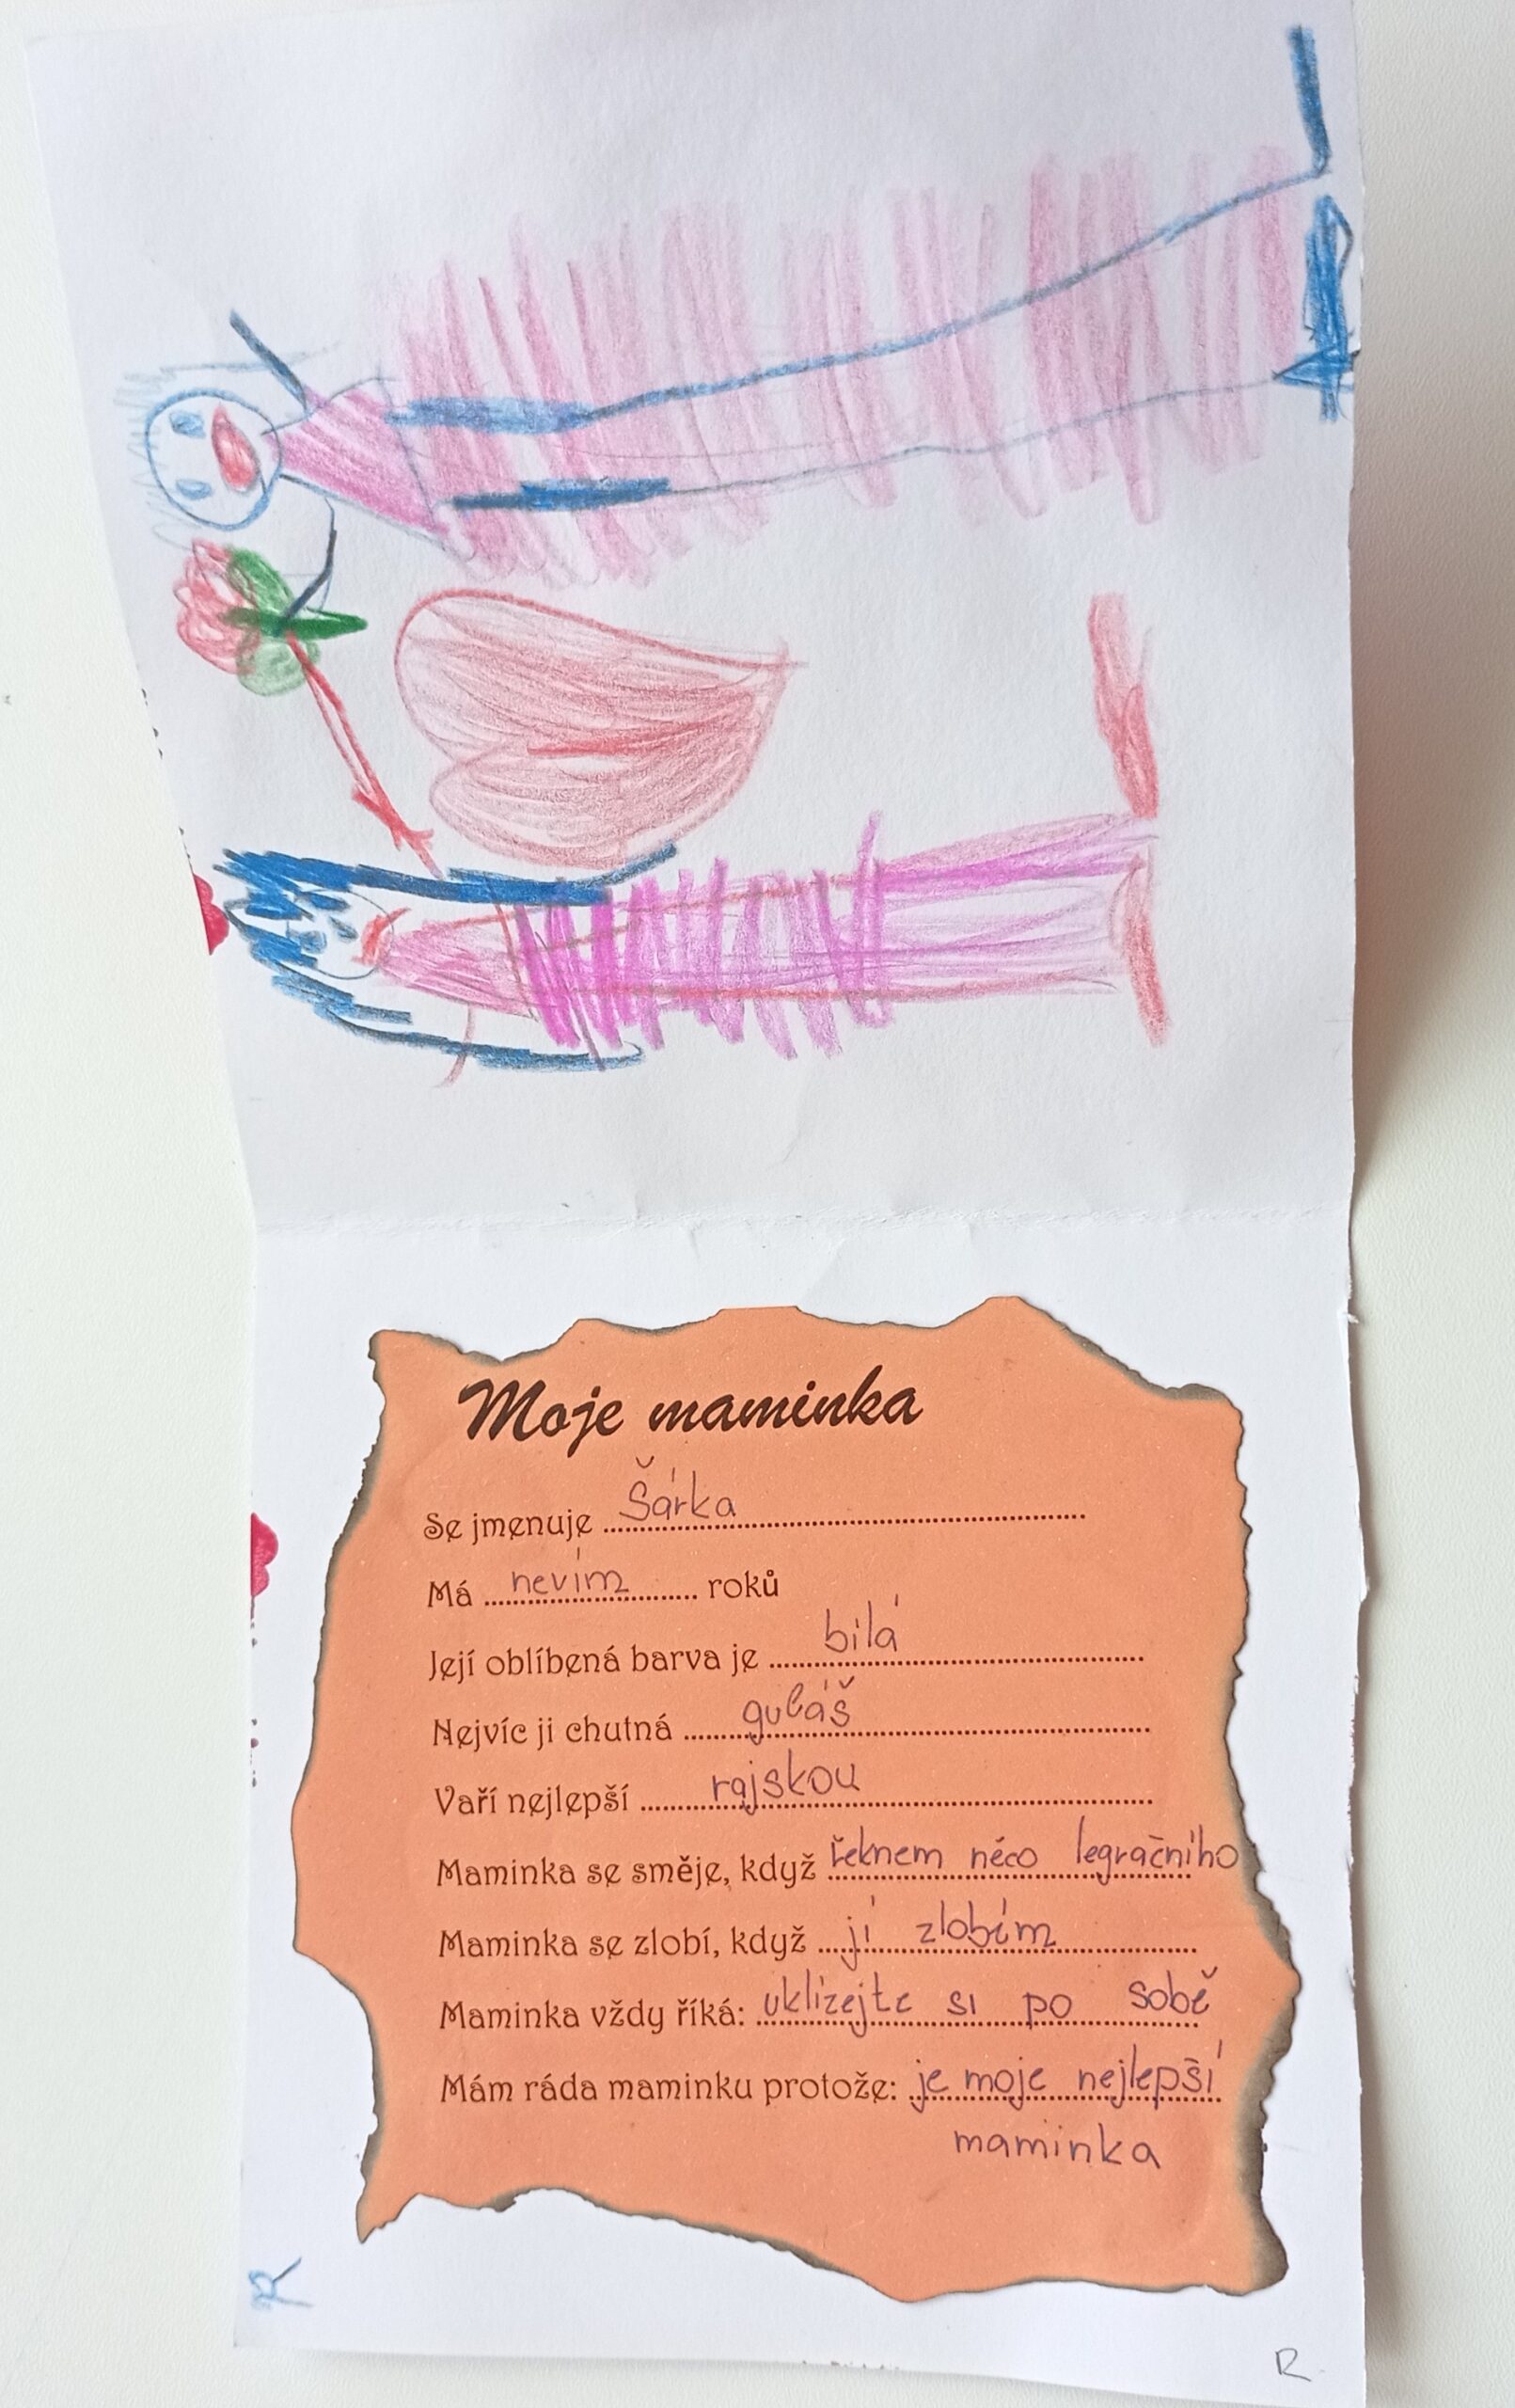 Moje maminka
Se jmenuje Šárka
Má nevím roků
Její oblíbená barva je bílá
Nejvíc ji chutná guláš
Vaří nejlepší rajskou
Maminka se směje, když řeknem něco legračního
Maminka se zlobí, když jí zlobím
Maminka vždy říká: uklízejte si po sobě
Mám ráda maminku protože: je moje nejlepší
maminka
R
R